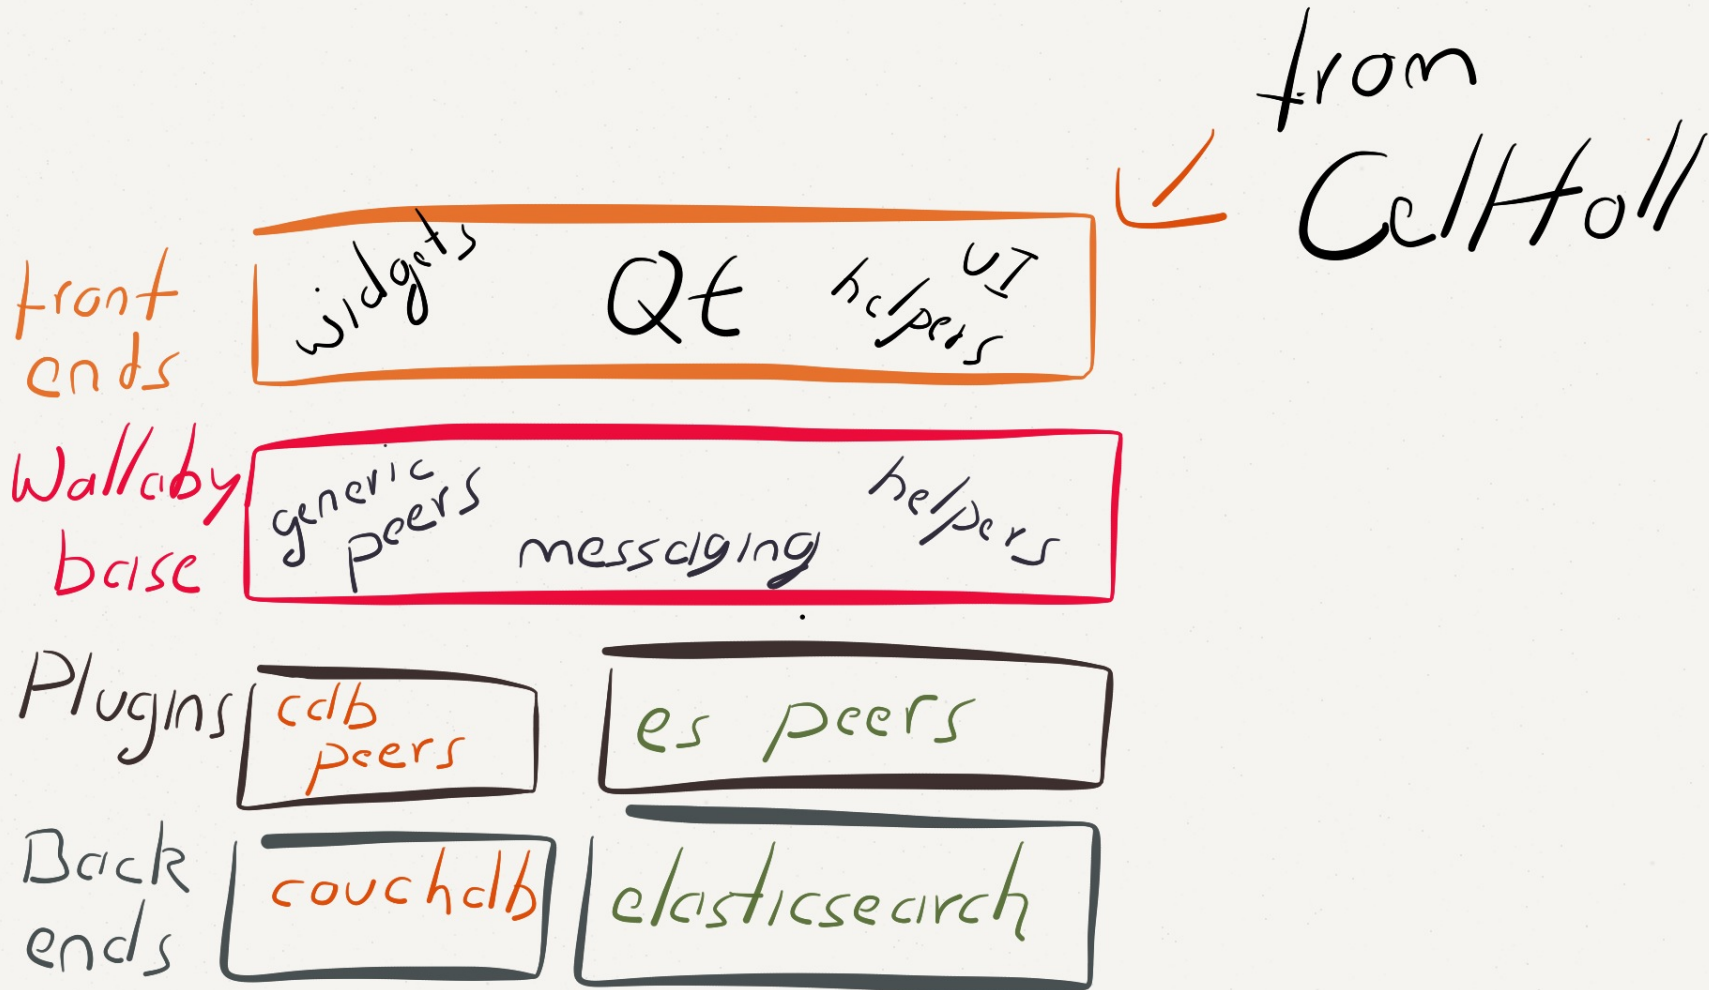 from
CalHall
front
ends
widgets
Qt
UI
helpers
Wallaby
base
generic
peers
messaging
helpers
Plugins
cdb
peers
es peers
Back
ends
couchdb
elasticsearch